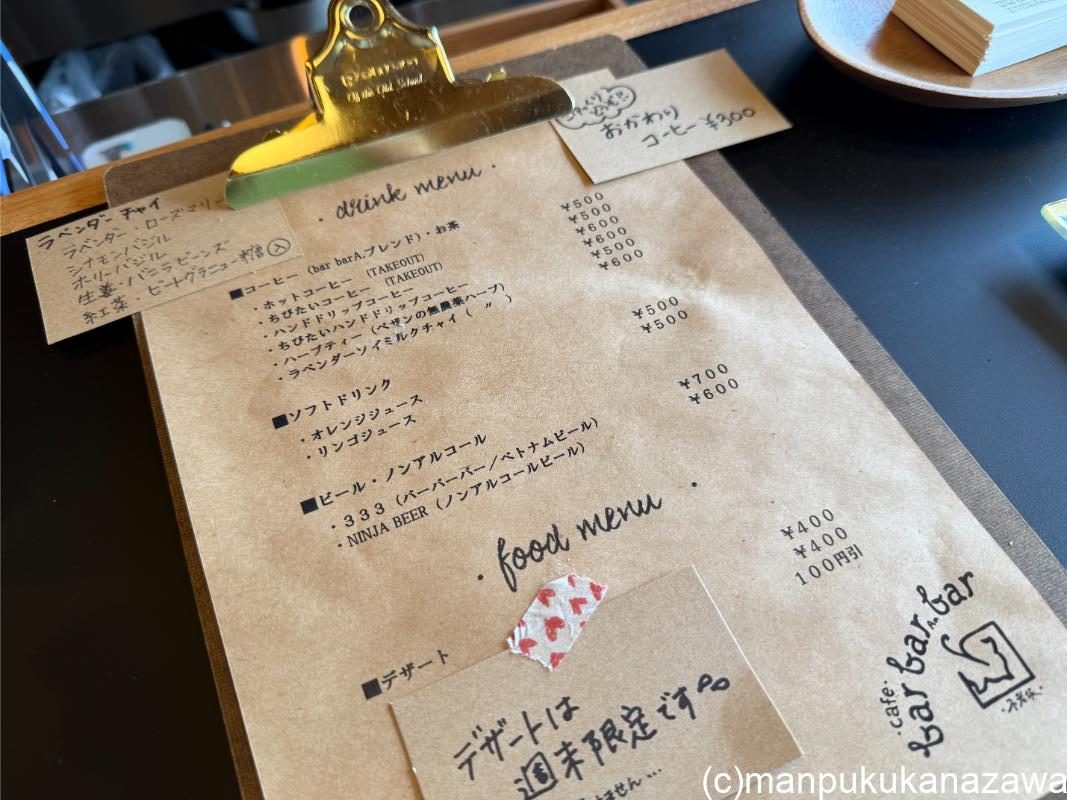 Of the Old School
おかわり
コーヒー ¥300
ラベンダーチャイ
ラベンダー・ローズマリー
シナモンバジル
ホーリーバジル
生姜・バニラビーンズ
紅茶・ビートグラニュー糖 入
・drink menu・
■コーヒー (bar barA.ブレンド)・お茶
・ホットコーヒー (TAKEOUT) ¥500
・ちびたいコーヒー (TAKEOUT) ¥500
・ハンドドリップコーヒー ¥600
・ちびたいハンドドリップコーヒー ¥600
・ハーブティー (ペザンの無農薬ハーブ) ¥500
・ラベンダーソイミルクチャイ ( 〃 ) ¥600
■ソフトドリンク
・オレンジジュース ¥500
・リンゴジュース ¥500
■ビール・ノンアルコール
・333 (バーバーバー/ベトナムビール) ¥700
・NINJA BEER (ノンアルコールビール) ¥600
・food menu・
¥400
¥400
100円引
■デザート
デザートは
週末限定です
ません…
・cafe・
bar bar A. bar
(c)manpukukanazawa